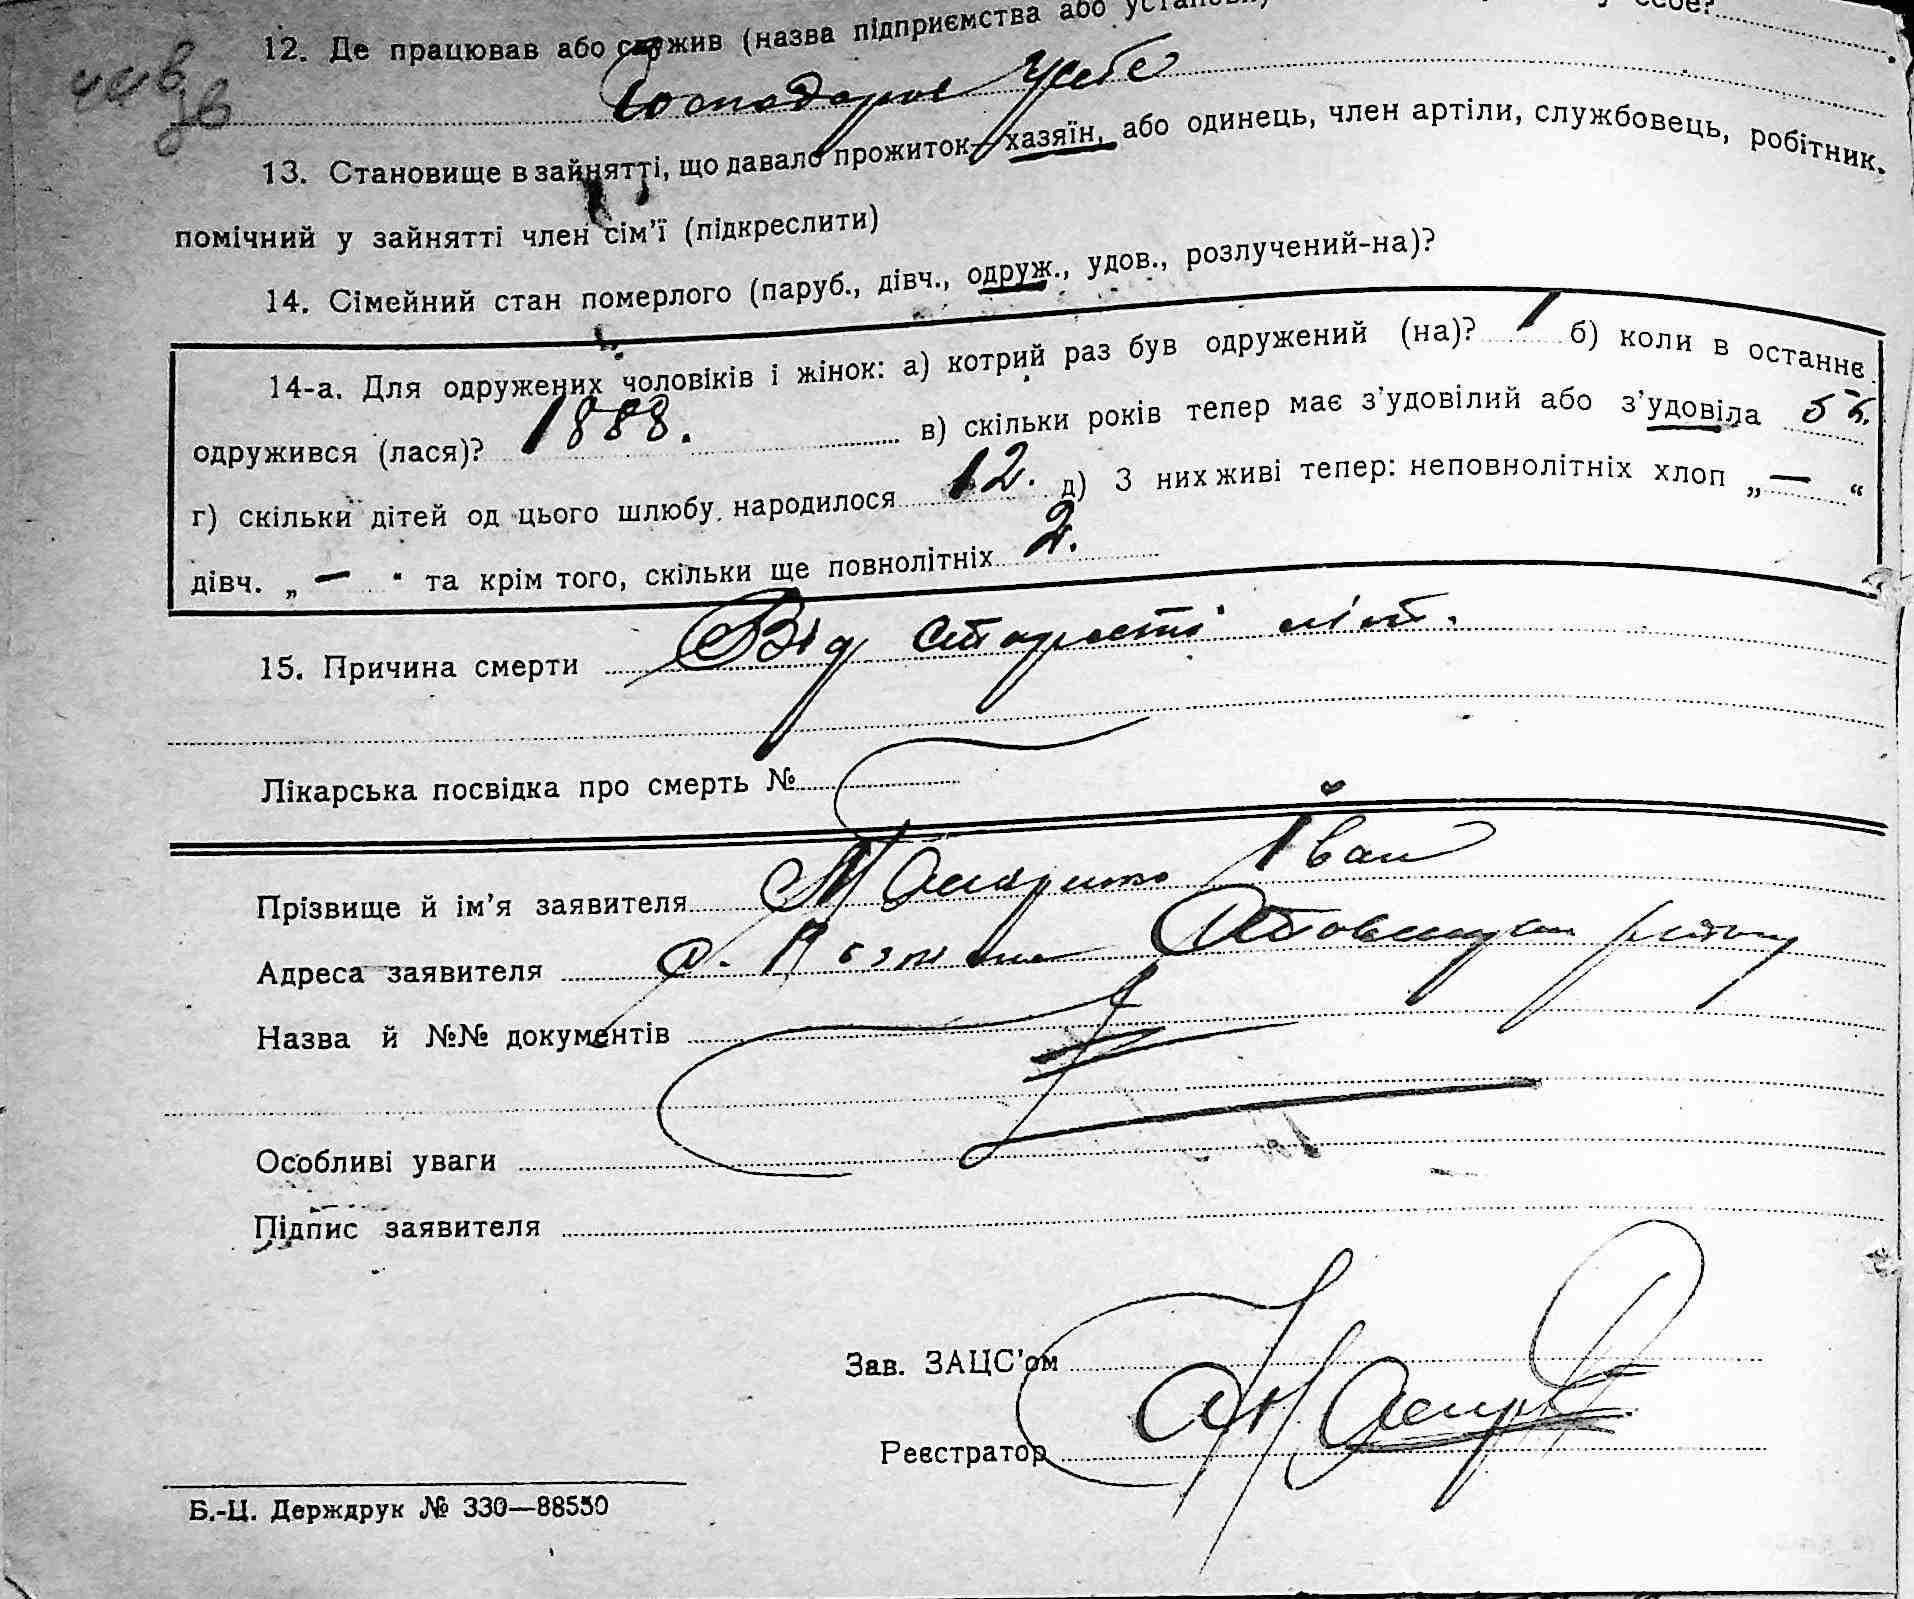 12. Де працював або служив (назва підприємства або установи, у себе?
Господарює у себе
13. Становище в зайнятті, що давало прожиток—хазяїн, або одинець, член артіли, службовець, робітник,
помічний у зайнятті член сім’ї (підкреслити)
14. Сімейний стан померлого (паруб., дівч., одруж., удов., розлучений-на)?
14-а. Для одружених чоловіків і жінок: а) котрий раз був одружений (на)? 1 б) коли в останнє
одружився (лася)? 1888. в) скільки років тепер має з’удовілий або з’удовіла
г) скільки дітей од цього шлюбу народилося 12. д) З них живі тепер: неповнолітніх хлоп „—“
дівч. „—“ та крім того, скільки ще повнолітніх 2.
15. Причина смерти Від старости літ.
Лікарська посвідка про смерть №
Прізвище й ім’я заявителя Іван
Адреса заявителя с.
Назва й №№ документів
Особливі уваги
Підпис заявителя
Зав. ЗАЦС’ом
Реєстратор
Б.-Ц. Держдрук № 330—88550